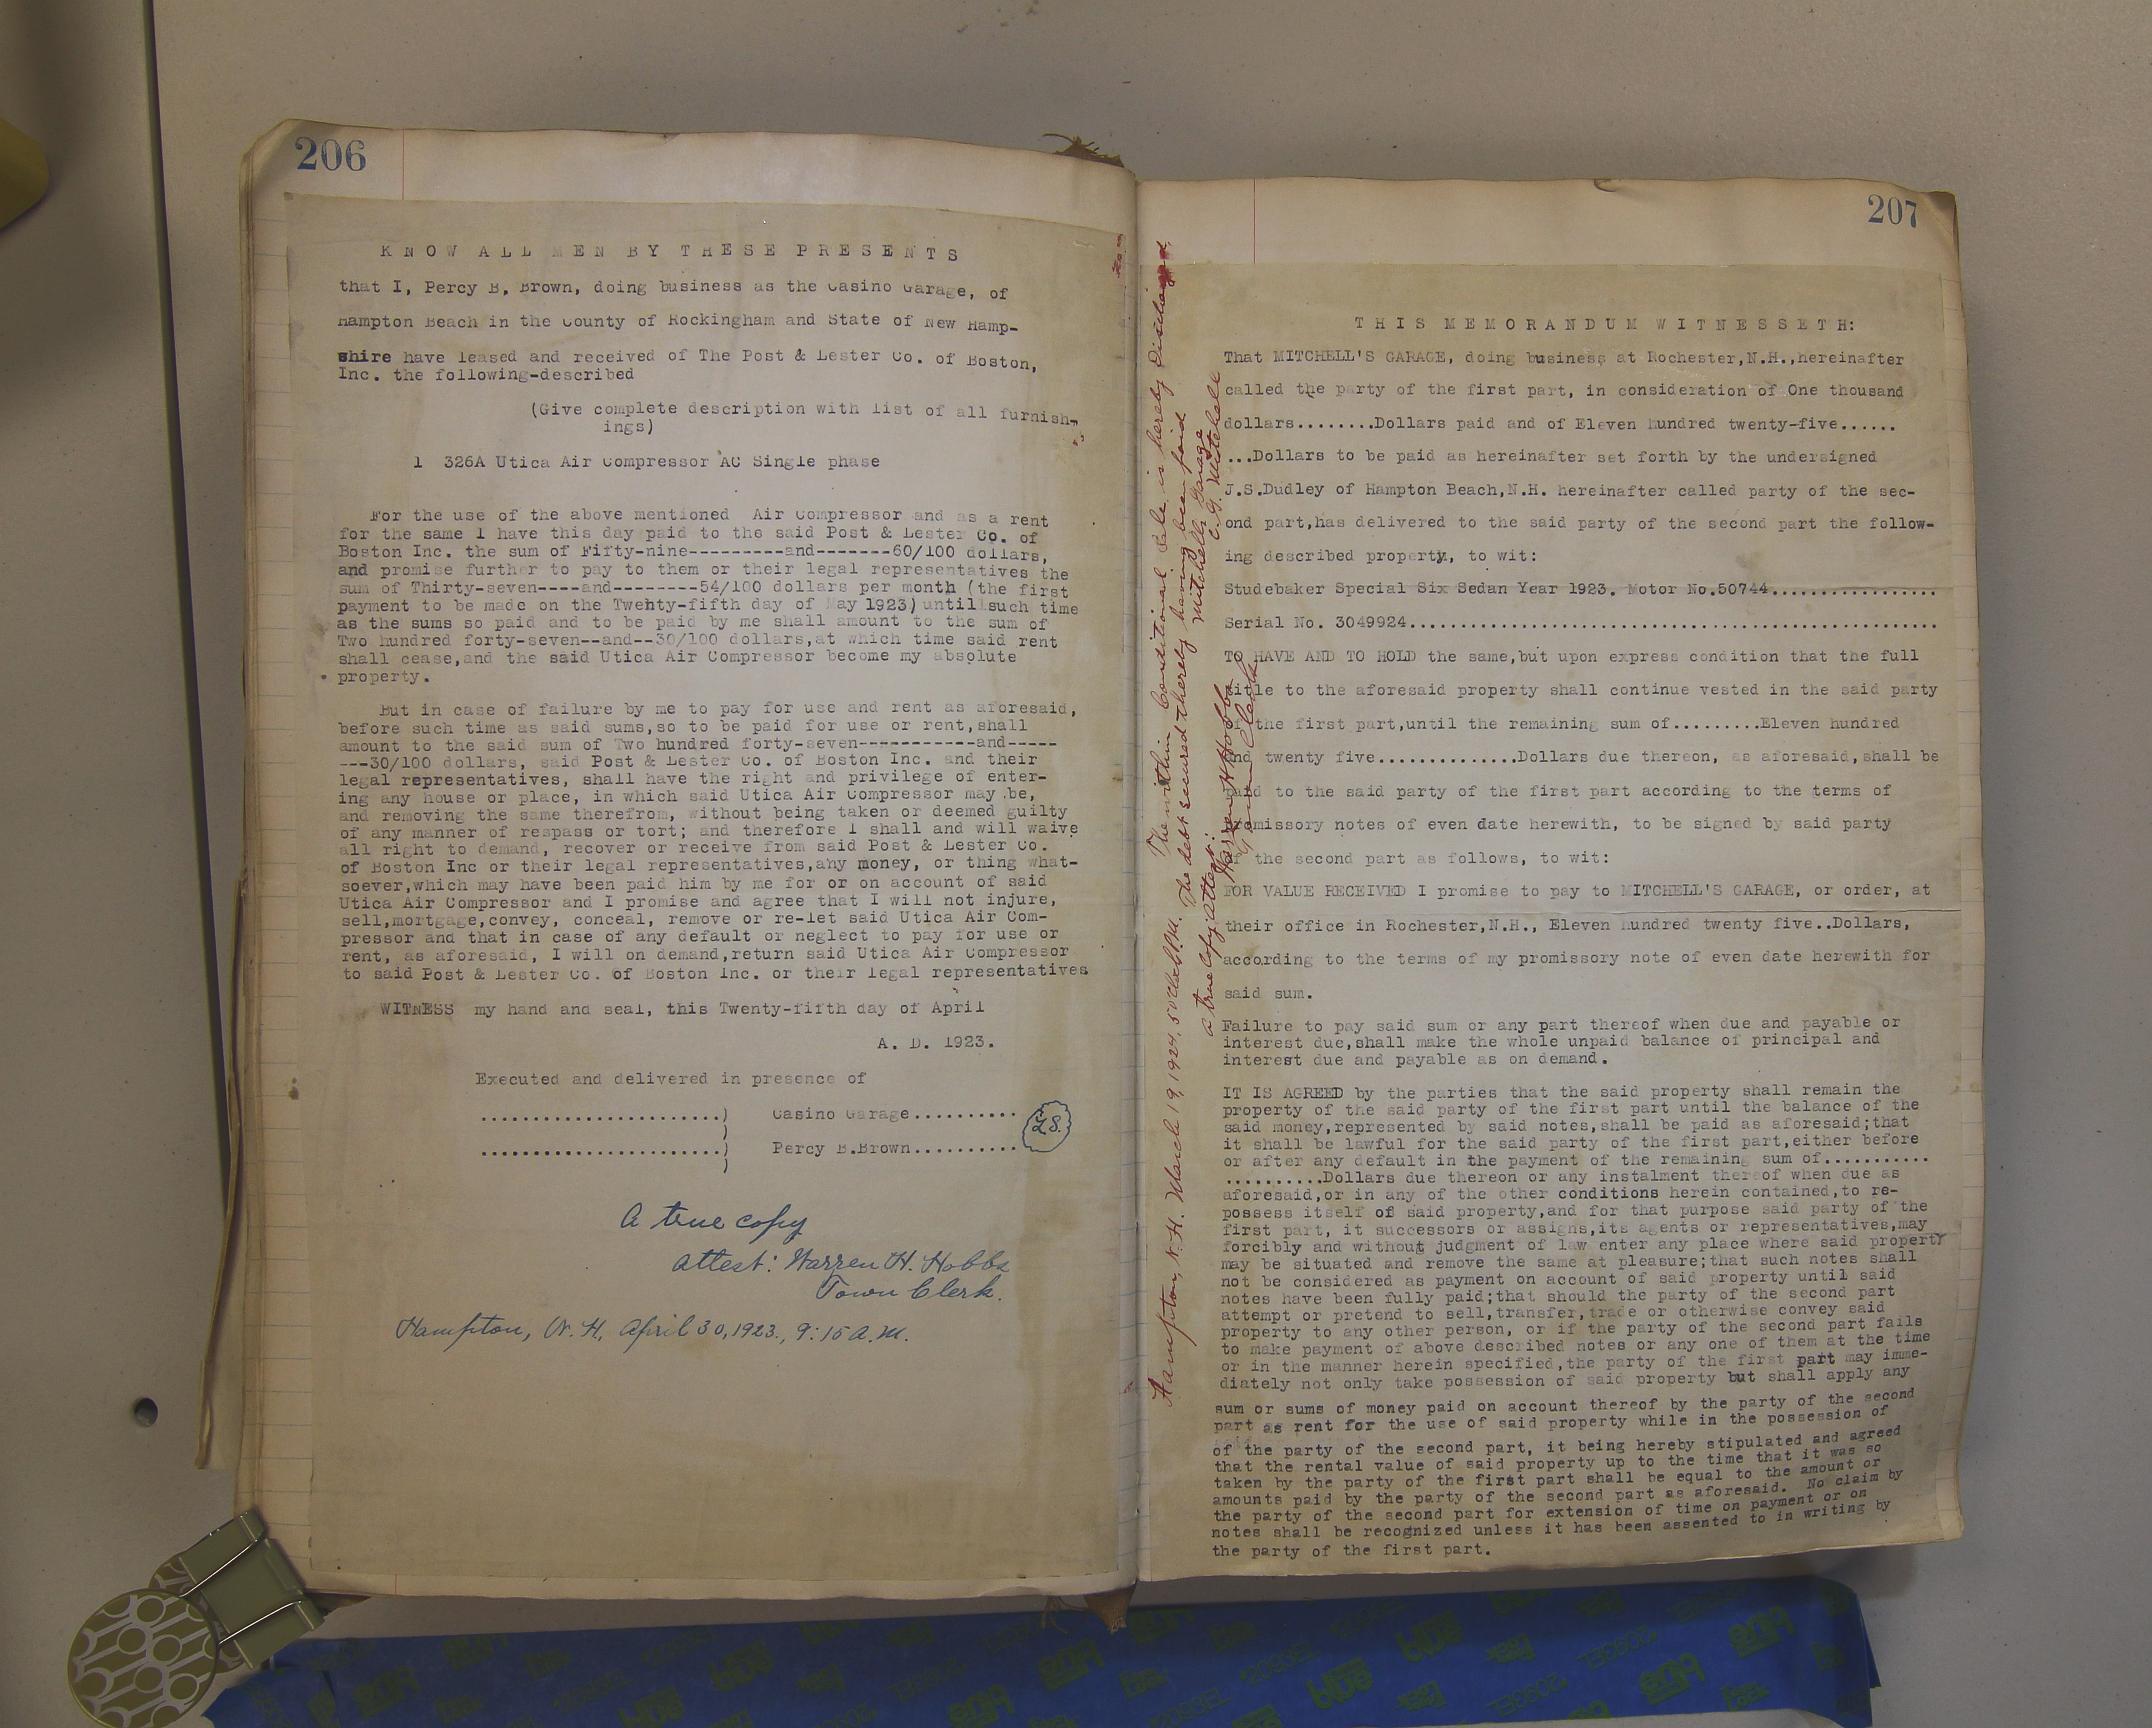 206
K N O W A L L M E N B Y T H E S E P R E S E N T S
that I, Percy B. Brown, doing business as the Casino Garage, of
Hampton Beach in the County of Rockingham and State of New Hamp-
shire have leased and received of The Post & Lester Co. of Boston,
Inc. the following-described
(Give complete description with list of all furnish-
ings)
1 326A Utica Air Compressor AC Single phase
For the use of the above mentioned Air Compressor and as a rent
for the same I have this day paid to the said Post & Lester Co. of
Boston Inc. the sum of Fifty-nine---------and-------60/100 dollars,
and promise further to pay to them or their legal representatives the
sum of Thirty-seven----and--------54/100 dollars per month (the first
payment to be made on the Twenty-fifth day of May 1923) until such time
as the sums so paid and to be paid by me shall amount to the sum of
Two hundred forty-seven--and--30/100 dollars,at which time said rent
shall cease,and the said Utica Air Compressor become my absolute
property.
But in case of failure by me to pay for use and rent as aforesaid,
before such time as said sums,so to be paid for use or rent,shall
amount to the said sum of Two hundred forty-seven-----------and-----
---30/100 dollars, said Post & Lester Co. of Boston Inc. and their
legal representatives, shall have the right and privilege of enter-
ing any house or place, in which said Utica Air Compressor may be,
and removing the same therefrom, without being taken or deemed guilty
of any manner of respass or tort; and therefore I shall and will waive
all right to demand, recover or receive from said Post & Lester Co.
of Boston Inc or their legal representatives,any money, or thing what-
soever,which may have been paid him by me for or on account of said
Utica Air Compressor and I promise and agree that I will not injure,
sell,mortgage,convey, conceal, remove or re-let said Utica Air Com-
pressor and that in case of any default or neglect to pay for use or
rent, as aforesaid, I will on demand,return said Utica Air Compressor
to said Post & Lester Co. of Boston Inc. or their legal representatives
WITNESS my hand and seal, this Twenty-fifth day of April
A. D. 1923.
Executed and delivered in presence of
.......................) Casino Garage..........
L.S.
.......................) Percy B.Brown..........
A true copy
Attest: Warren H. Hobbs
Town Clerk.
Hampton, N. H, April 30, 1923., 9:15 A.M.
207
Hampton, N. H. March 19, 1924, The within Conditional Sale is hereby Discharged,
The debt secured thereby having been paid
Mitchell's Garage
C. G. Mitchell
A true copy attest:
Warren H Hobbs
Town Clerk.
T H I S M E M O R A N D U M W I T N E S S E T H:
That MITCHELL'S GARAGE, doing business at Rochester,N.H.,hereinafter
called the party of the first part, in consideration of One thousand
dollars........Dollars paid and of Eleven hundred twenty-five......
...Dollars to be paid as hereinafter set forth by the undersigned
J.S.Dudley of Hampton Beach,N.H. hereinafter called party of the sec-
ond part,has delivered to the said party of the second part the follow-
ing described property, to wit:
Studebaker Special Six Sedan Year 1923. Motor No.50744.................
Serial No. 3049924.....................................................
TO HAVE AND TO HOLD the same,but upon express condition that the full
title to the aforesaid property shall continue vested in the said party
of the first part,until the remaining sum of.........Eleven hundred
and twenty five..............Dollars due thereon, as aforesaid,shall be
paid to the said party of the first part according to the terms of
promissory notes of even date herewith, to be signed by said party
of the second part as follows, to wit:
FOR VALUE RECEIVED I promise to pay to MITCHELL'S GARAGE, or order, at
their office in Rochester,N.H., Eleven hundred twenty five..Dollars,
according to the terms of my promissory note of even date herewith for
said sum.
Failure to pay said sum or any part thereof when due and payable or
interest due,shall make the whole unpaid balance of principal and
interest due and payable as on demand.
IT IS AGREED by the parties that the said property shall remain the
property of the said party of the first part until the balance of the
said money,represented by said notes,shall be paid as aforesaid;that
it shall be lawful for the said party of the first part,either before
or after any default in the payment of the remaining sum of...........
..........Dollars due thereon or any instalment thereof when due as
aforesaid,or in any of the other conditions herein contained,to re-
possess itself of said property,and for that purpose said party of the
first part, it successors or assigns,its agents or representatives,may
forcibly and without judgment of law enter any place where said property
may be situated and remove the same at pleasure;that such notes shall
not be considered as payment on account of said property until said
notes have been fully paid;that should the party of the second part
attempt or pretend to sell,transfer,trade or otherwise convey said
property to any other person, or if the party of the second part fails
to make payment of above described notes or any one of them at the time
or in the manner herein specified,the party of the first part may imme-
diately not only take possession of said property but shall apply any
sum or sums of money paid on account thereof by the party of the second
part as rent for the use of said property while in the possession of
of the party of the second part, it being hereby stipulated and agreed
that the rental value of said property up to the time that it was so
taken by the party of the first part shall be equal to the amount or
amounts paid by the party of the second part as aforesaid. No claim by
the party of the second part for extension of time on payment or on
notes shall be recognized unless it has been assented to in writing by
the party of the first part.